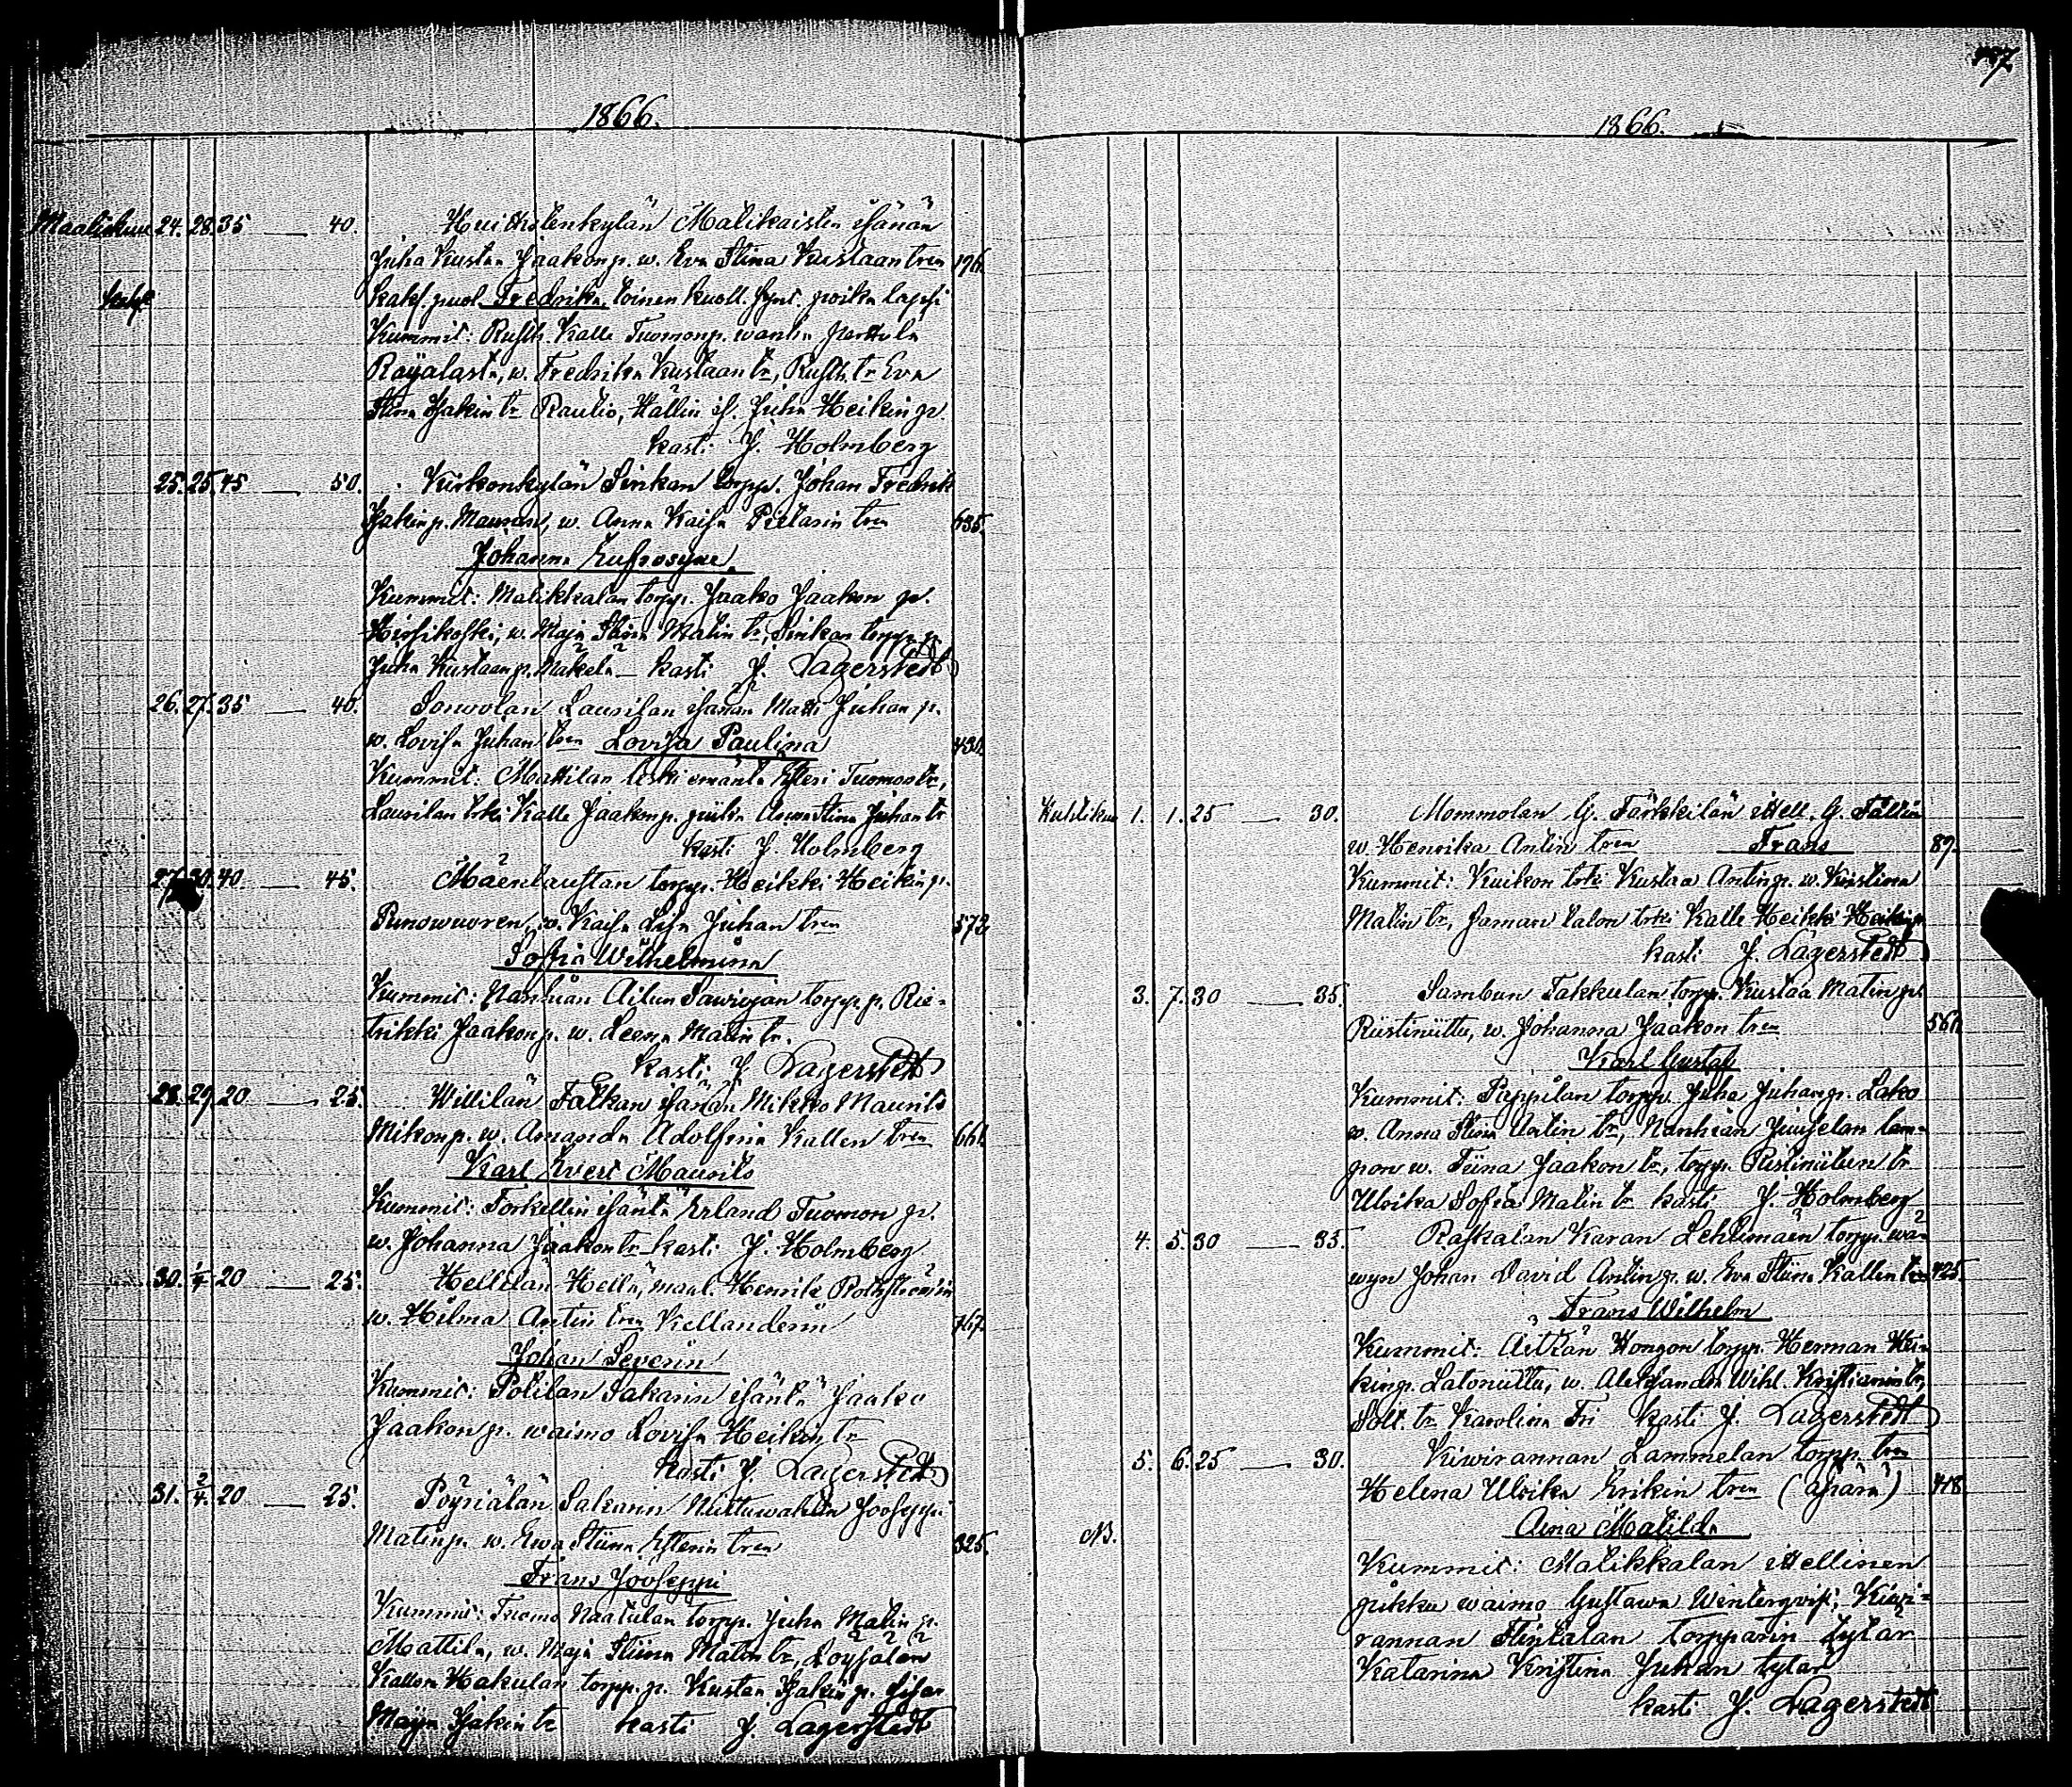 1866.
Maaliskuu 24. 28. 35 — 40. Huittistenkylän Matikaisten isänän
Juha Kustaa Jaakonp. w. Eva Stina Kustaan tren 196.
kaks. puol. Fredrika, toinen kuoll. synt. poika lapsi
Kummit: Rusth. Kalle Tuomonp. wanha Parttula
w. Fredrika Kustaan tr, Rusth. tr Eva
Stina Isakin tr Rautio, Hällin is. Juha Heikin p.
kasti J. Holmberg
25. 25. 45 — 50. Kirkonkylän Sinkan torpp. Johan Fredrik
Isakin p. w. Anna Kaisa Pietarin tren 635.
Johanna Eufrosyne
Kummit: Matikkalan torpp. Jaako Jaakon p.
Hirsikoski, w. Maja Stina Matin tr, Sinkan torpp. p.
Juha Kustaan p. Mäkelä — kasti J. Lagerstedt
26. 27. 35 — 40. Sonwolan Laurilan isänän Matti Juhan p.
w. Lovisa Juhan tren Lovisa Paulina 430.
Kummit: Mattilan leski emäntä Esteri Tuomon tr,
Laurilan trki Kalle Jaakon p. piika Anna Stina Juhan tr
kasti J. Holmberg
27. 30. 40 — 45. Mäenlaustan torpp. Heikki Heikin p.
w. Kaisa Lisa Juhan tren 572
Sofia Wilhelmina
Kummit: Nanhian torpp. p. Rie-
trikki Jaakon p. w. Leena Matin tr.
kasti J. Lagerstedt
28. 29. 20 — 25. Willilän Talkan isänän Mikko Maurits
Mikon p. w. Amanda Adolfina Kallen tren 661.
Karl Evert Maurits
Kummit: Torkellin isäntä Erland Tuomon p.
w. Johanna Jaakon tr kasti J. Holmberg
30. 1/4 20 — 25. Hellilän Hellä, maal. Henrik
w. Hilma Antin tren 767.
Johan Severin
Kummit: Potilan Sakarin isäntä Jaako
Jaakon p. waimo Lovisa Heikin tr
kasti J. Lagerstedt
31. 2/4. 20 — 25. Pöyriälän Sakarin Jooseppi
Matin p. w. Ewa Stiina Esterin tren 325.
Frans Jooseppi
Kummit: Tuomo Naatulan torpp. Juha Matin p.
Mattila, w. Maja Stiina Matin tr,
Hakulan torpp. p. Kustaa Isakin p. sisar
Maja Isakin tr kasti J. Lagerstedt
1866.
Huhtikuu 1. 1. 25 — 30. Mommolan G. Tärkkilän itsell. G. Tallin
w. Henrika Antin tren Frans 89.
Kummit: Kuikon trki Kustaa Antin p. w. Kristina
Matin tr, saman talon trki Kalle Heikki Heikin p.
kasti J. Lagerstedt
3. 7. 30 — 35. Sambun Takkulan torpp. Kustaa Matin p.
Ristiniittu, w. Johanna Jaakon tren 561.
Karl Gustaf
Kummit: Pappilan torpp. Juha Juhan p. Lako
w. Anna Stina Antin tr, Nanhian lam-
puon w. Tiina Jaakon tr, torpp. Ristiniitun tr
Ulrika Sofia Matin tr kasti J. Holmberg
4. 5. 30 — 35. Raskalan Karan Lehtimäen torpp. wä-
wyn Johan David Antin p. w. Eva Stiina Kallen tren 425.
Frans Wilhelm
Kummit: Hongon torpp. Herman Hei-
kin p. Latoniittu, w. Aleksandra Wilh. Kristianin tr,
Solt. tr Karolina Fri kasti J. Lagerstedt
5. 6. 25 — 30. Kiwirannan Lammelan torpp. tren
Helena Ulrika Erikin tren (äpärä) 418
NB. Aina Matilda
Kummit: Matikkalan itsellinen
pikku waimo Gustawa Winterqvist, Kiwi-
rannan torpparin tytär
Katarina Kristina Juhan tytär
kasti J. Lagerstedt